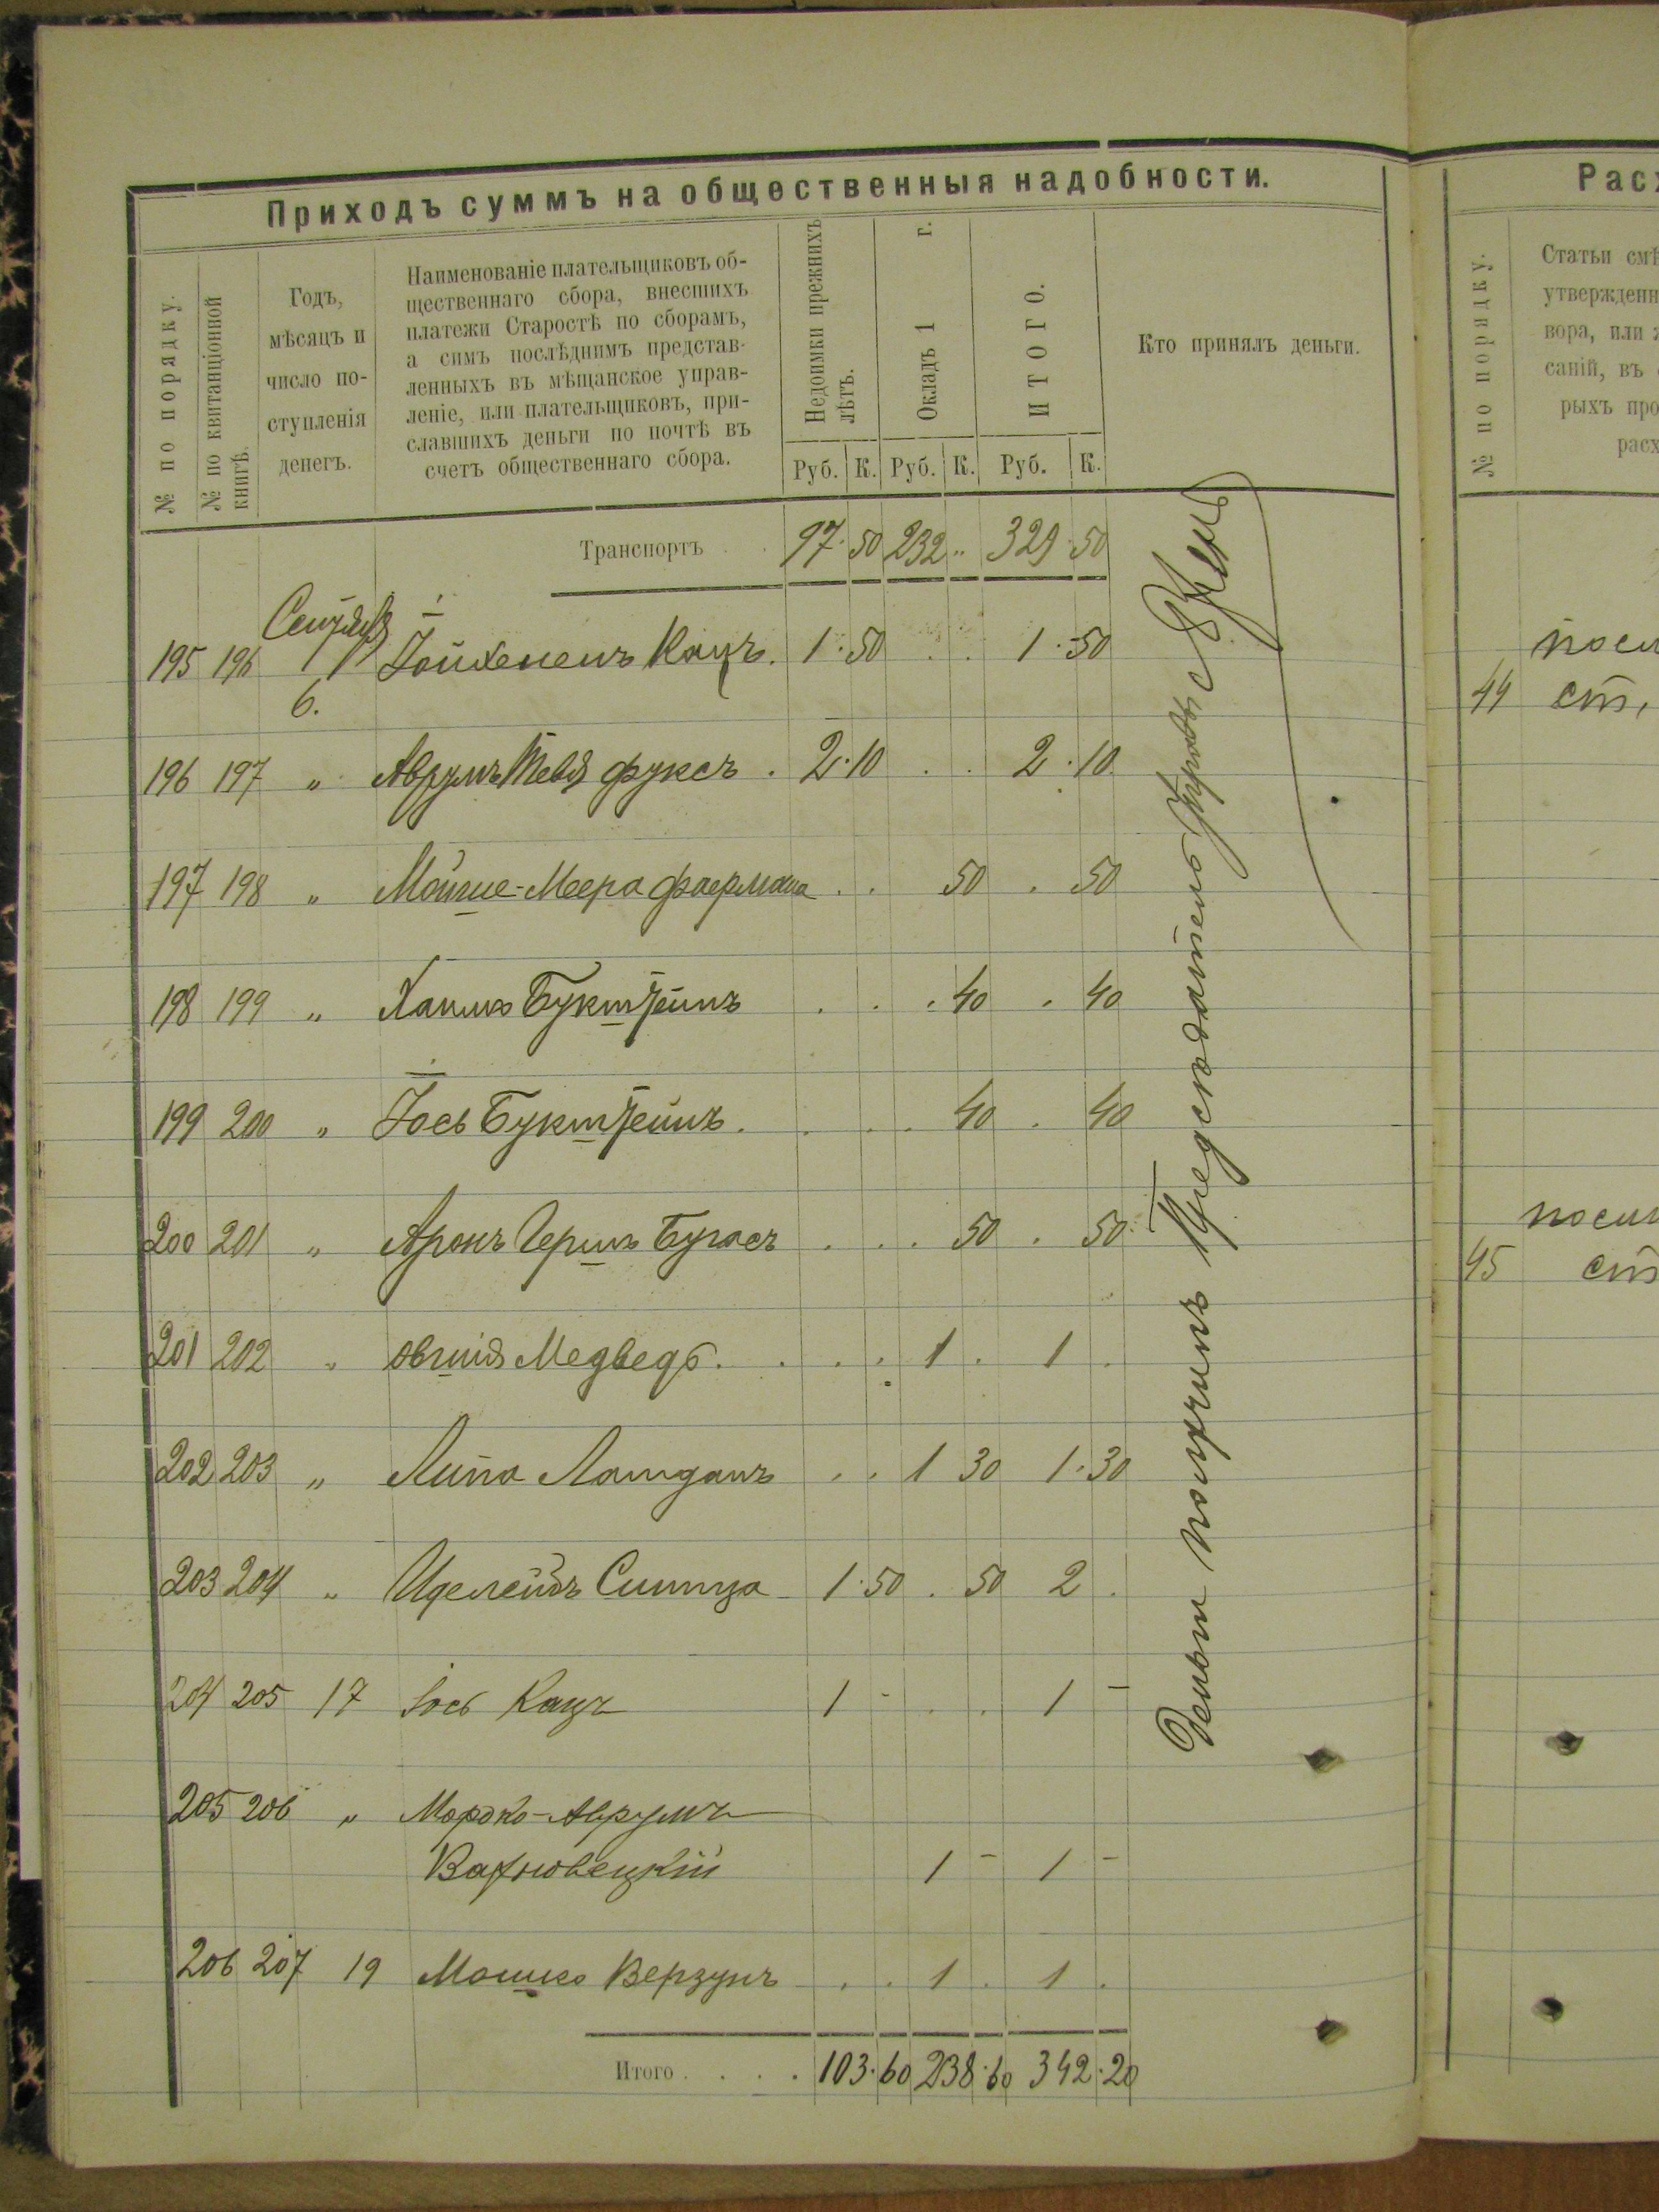 Приходъ суммъ на общественныя надобности.
№ по порядку.
№ по квитанціонной
книгѣ.
Годъ,
мѣсяцъ и
число по-
ступленія
денегъ.
Наименованіе плательщиковъ об-
щественнаго сбора, внесшихъ
платежи Старостѣ по сборамъ,
а симъ послѣднимъ представ-
ленныхъ въ мѣщанское управ-
леніе, или плательщиковъ, при-
славшихъ деньги по почтѣ въ
счетъ общественнаго сбора.
Недоимки прежнихъ
лѣтъ.
Окладъ 1 г.
ИТОГО.
Кто принялъ деньги.
Руб. К. Руб. К. Руб. К.
Транспортъ . . 97 50 232 " 329 50
Сентября
195 196 Кацъ. 1 50 . . 1 50
6.
196 197 " Аврумъ Тевя Фуксъ . 2 10 . . 2 10
197 198 " Мойше-Меера Фаермана . . 50 . 50
198 199 " Хаимъ Букштейнъ . . . 40 . 40
199 200 " Іось Букштейнъ . . . . 40 . 40
200 201 " Аронъ Гершъ Бугасъ . . . 50 . 50
201 202 " Овшія Медведь . . . . 1 . 1 .
202 203 " Липа Ламданъ . . 1 30 1 30
203 204 " 1 50 . 50 2 .
204 205 17 Іось Кацъ 1 - . . 1 -
205 206 " Мордко-Аврумъ
Вахновецкій 1 - 1 -
206 207 19 Мошко Верзунъ . . 1 . 1 .
Итого . . . . 103 60 238 60 342 20
Деньги получилъ Предсѣдатель Управы
Расх
№ по порядку.
Статьи смѣ
утвержденн
вора, или ж
саній, въ
рыхъ про
расх
44 ст.
45 ст